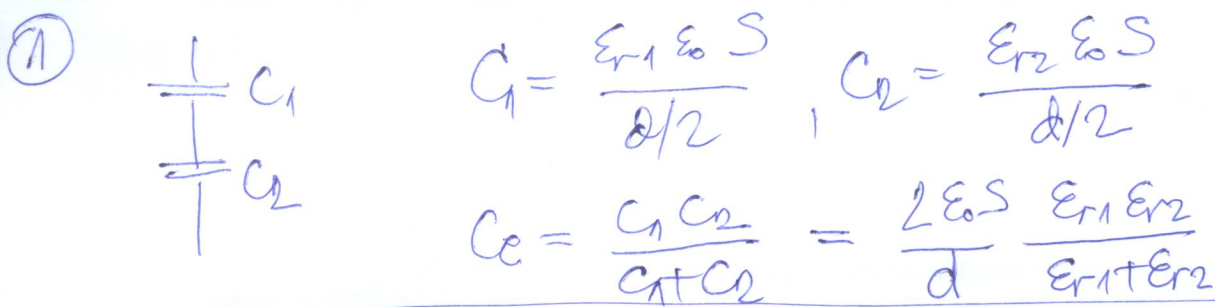 1
C1
C2
C1 = εr1 ε0 S / d/2 , C2 = εr2 ε0 S / d/2
Ce = C1 C2 / C1+C2 = 2 ε0 S / d εr1 εr2 / εr1+εr2